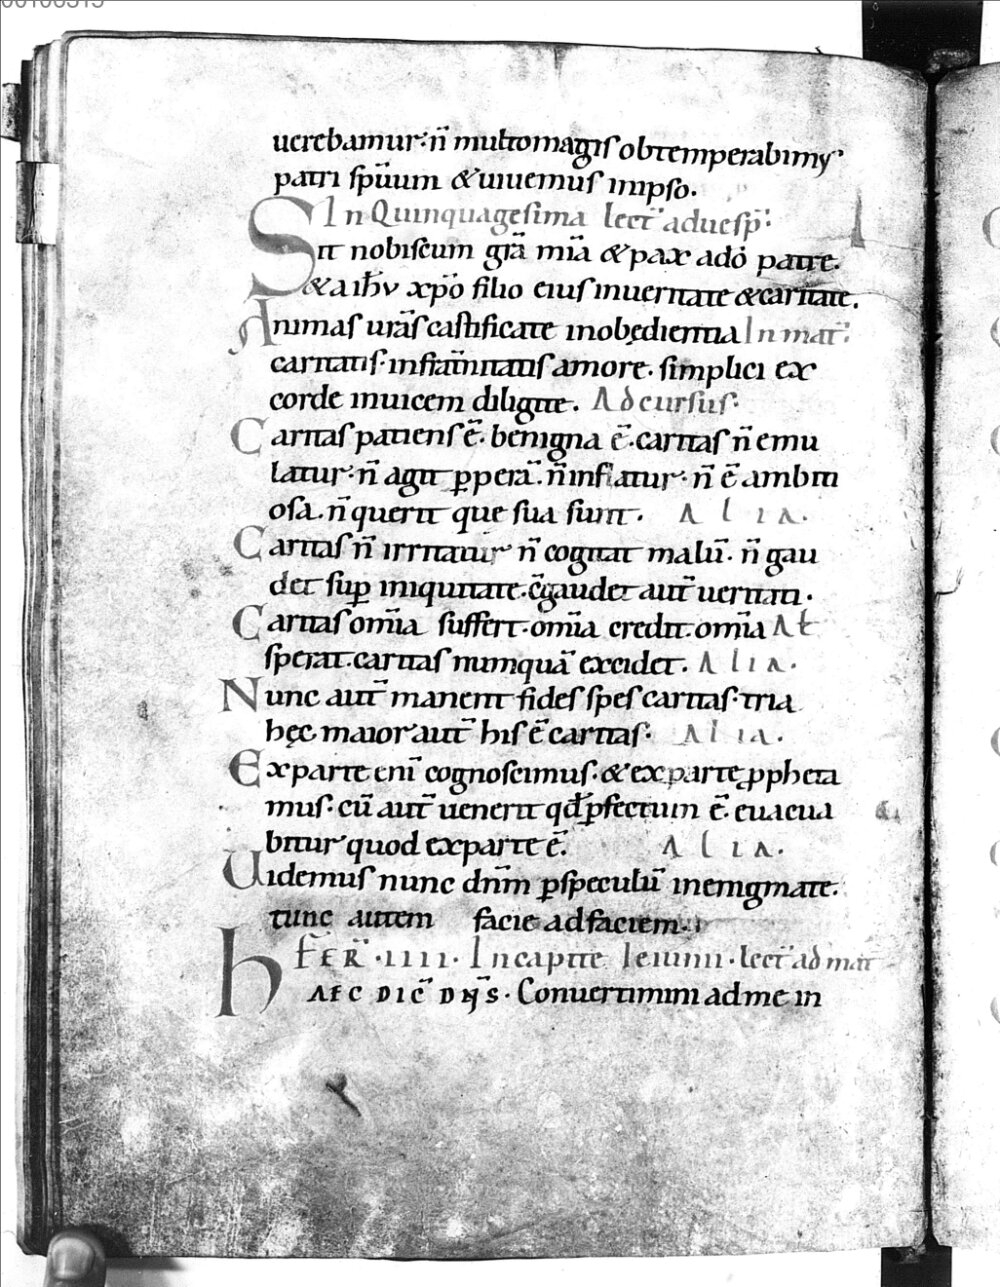 uerebamur· n̄ multo magis obtemperabimus
patri spũum & uiuemus in ipso.
In Quinquagesima lect̄ ad uesp̄:
Sit nobiscum grã mĩa & pax a dõ patre.
& a ihũ xp̃o filio eius in ueritate & caritate.
Animas urãs castificate in obędientia In mat̄:
caritatis· in frãnitatis amore. simplici ex
corde inuicem diligite. Ad cursus·
Caritas patiens ẽ. benigna ẽ. caritas n̄ emu
latur· n̄ agit ꝑperã. n̄ inflatur· n̄ ẽ ambiti
osa. n̄ querit que sua sunt. Alia.
Caritas n̄ irritatur n̄ cogitat malũ. n̄ gau
det suꝑ iniquitate. c̄gaudet aut̄ ueritati.
Caritas om̃ia suffert. om̃ia credit. om̃ia Al̄
sperat. caritas numquã excidet. Alia.
Nunc aut̄ manent fides spes caritas· tria
hęc. maior aut̄ his ẽ caritas· Alia.
Ex parte enĩ cognoscimus. & ex parte ꝓpheta
mus· cũ aut̄ uenerit qd̄ ꝑfectum ẽ. euacua
bitur quod ex parte ẽ. Alia.
Uidemus nunc dñm ꝑ speculũ in enigmate.
tunc autem facie ad faciem.
FER̄ ·IIII· In capite Ieiunii· lect̄ ad mat
hAEC DIC̄ DÑS. Conuertimini ad me in